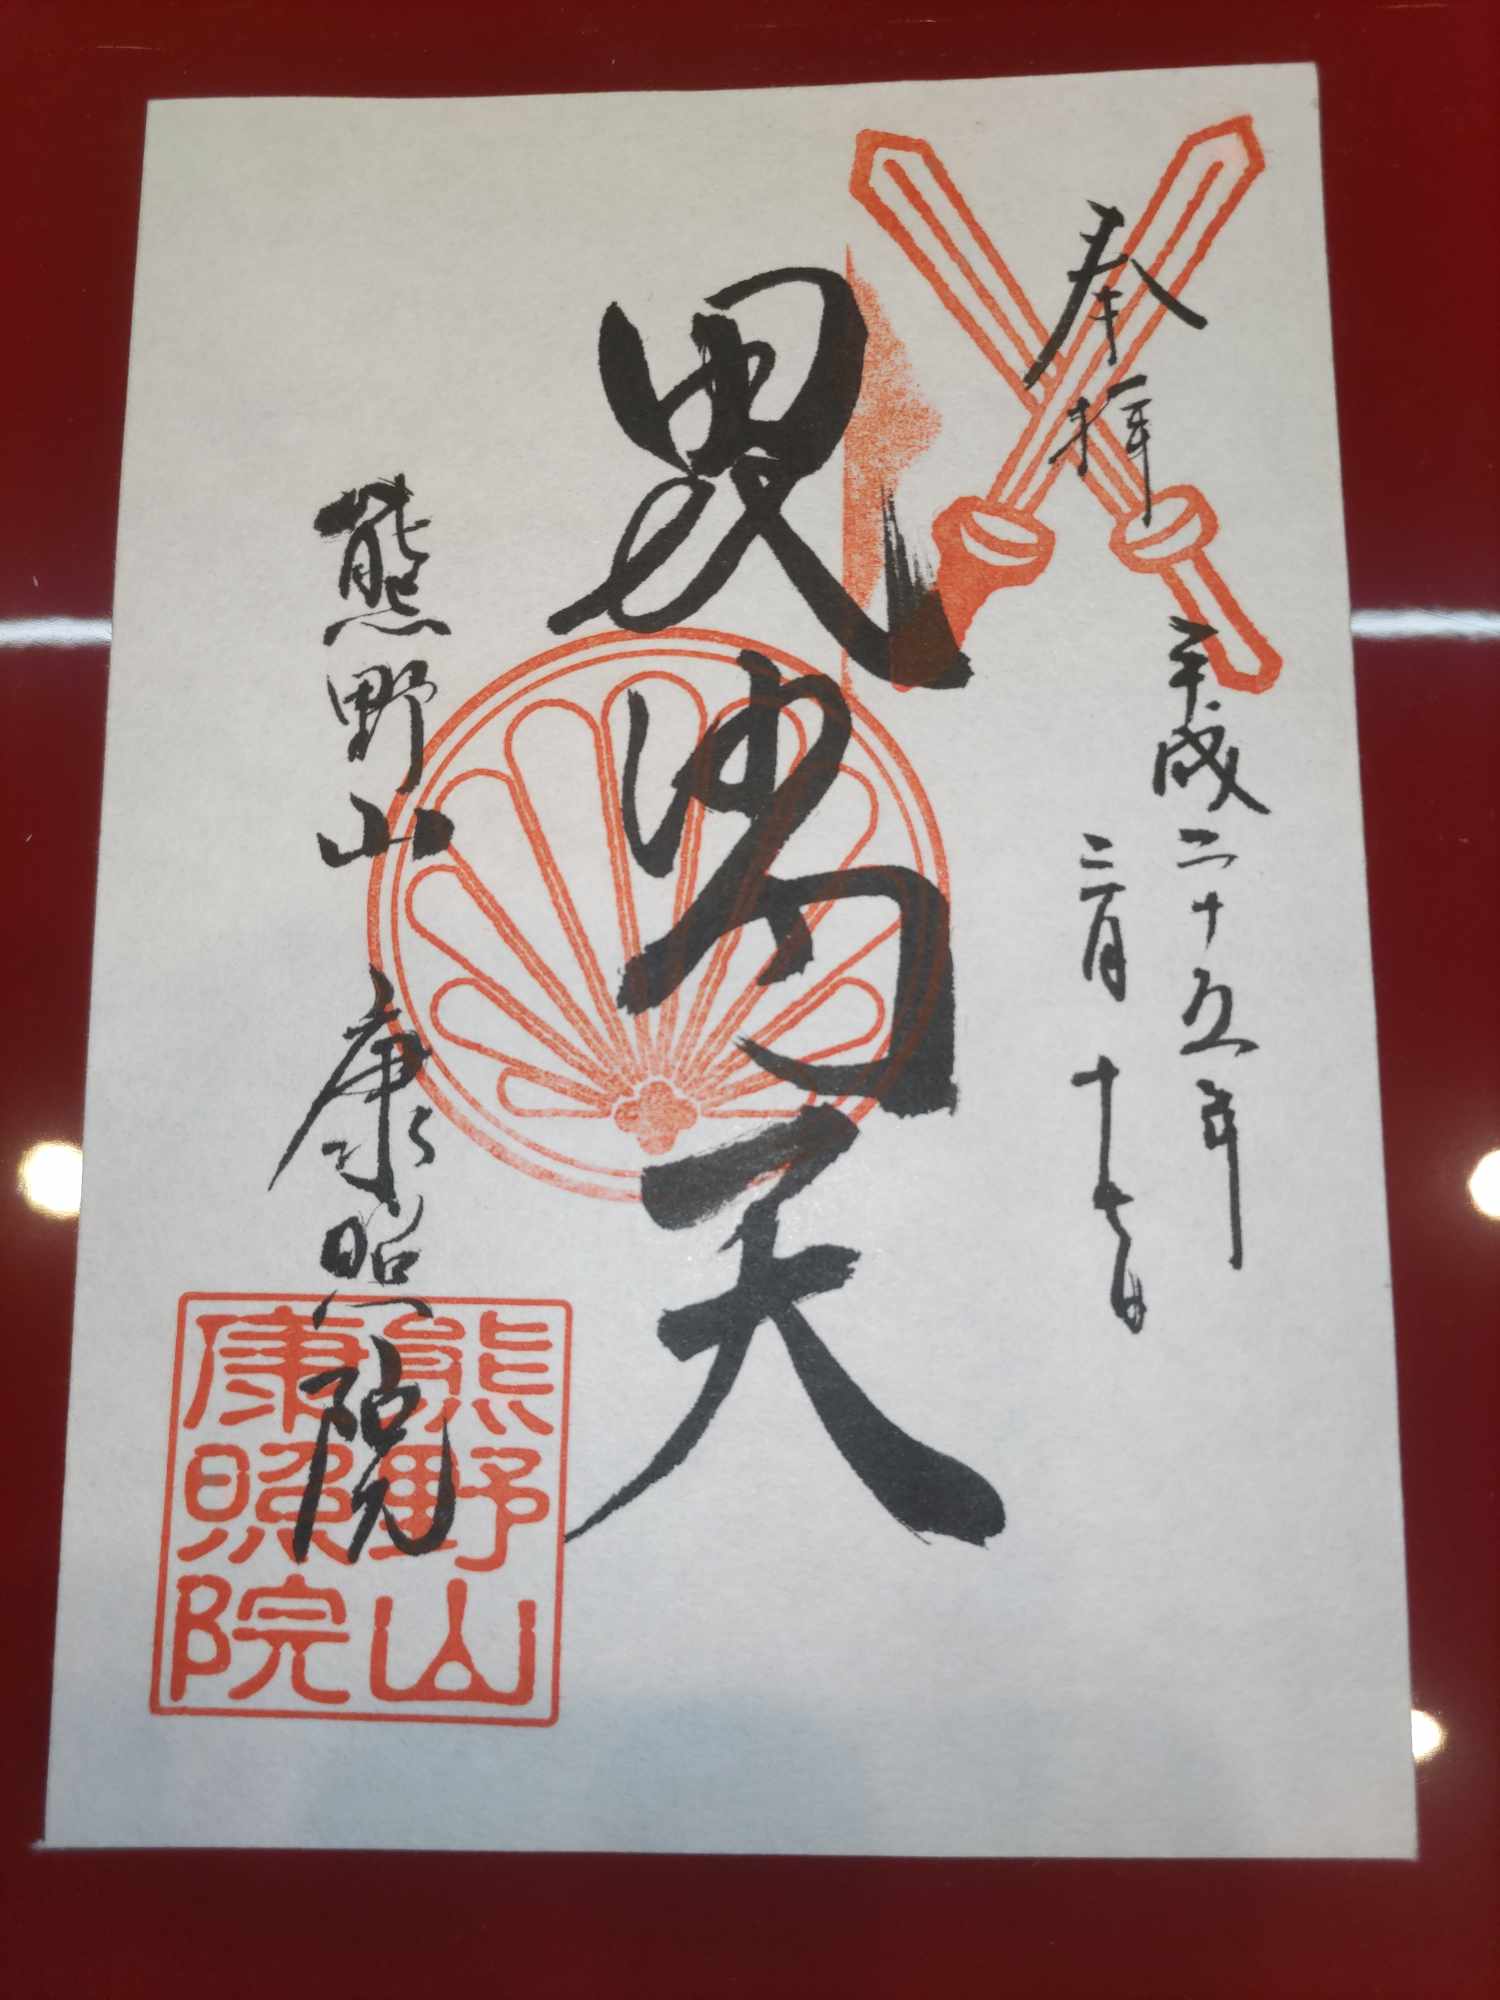 奉拝
平成二十五年
三月十七日
毘沙門天
熊野山 康照院
熊野山
康照院